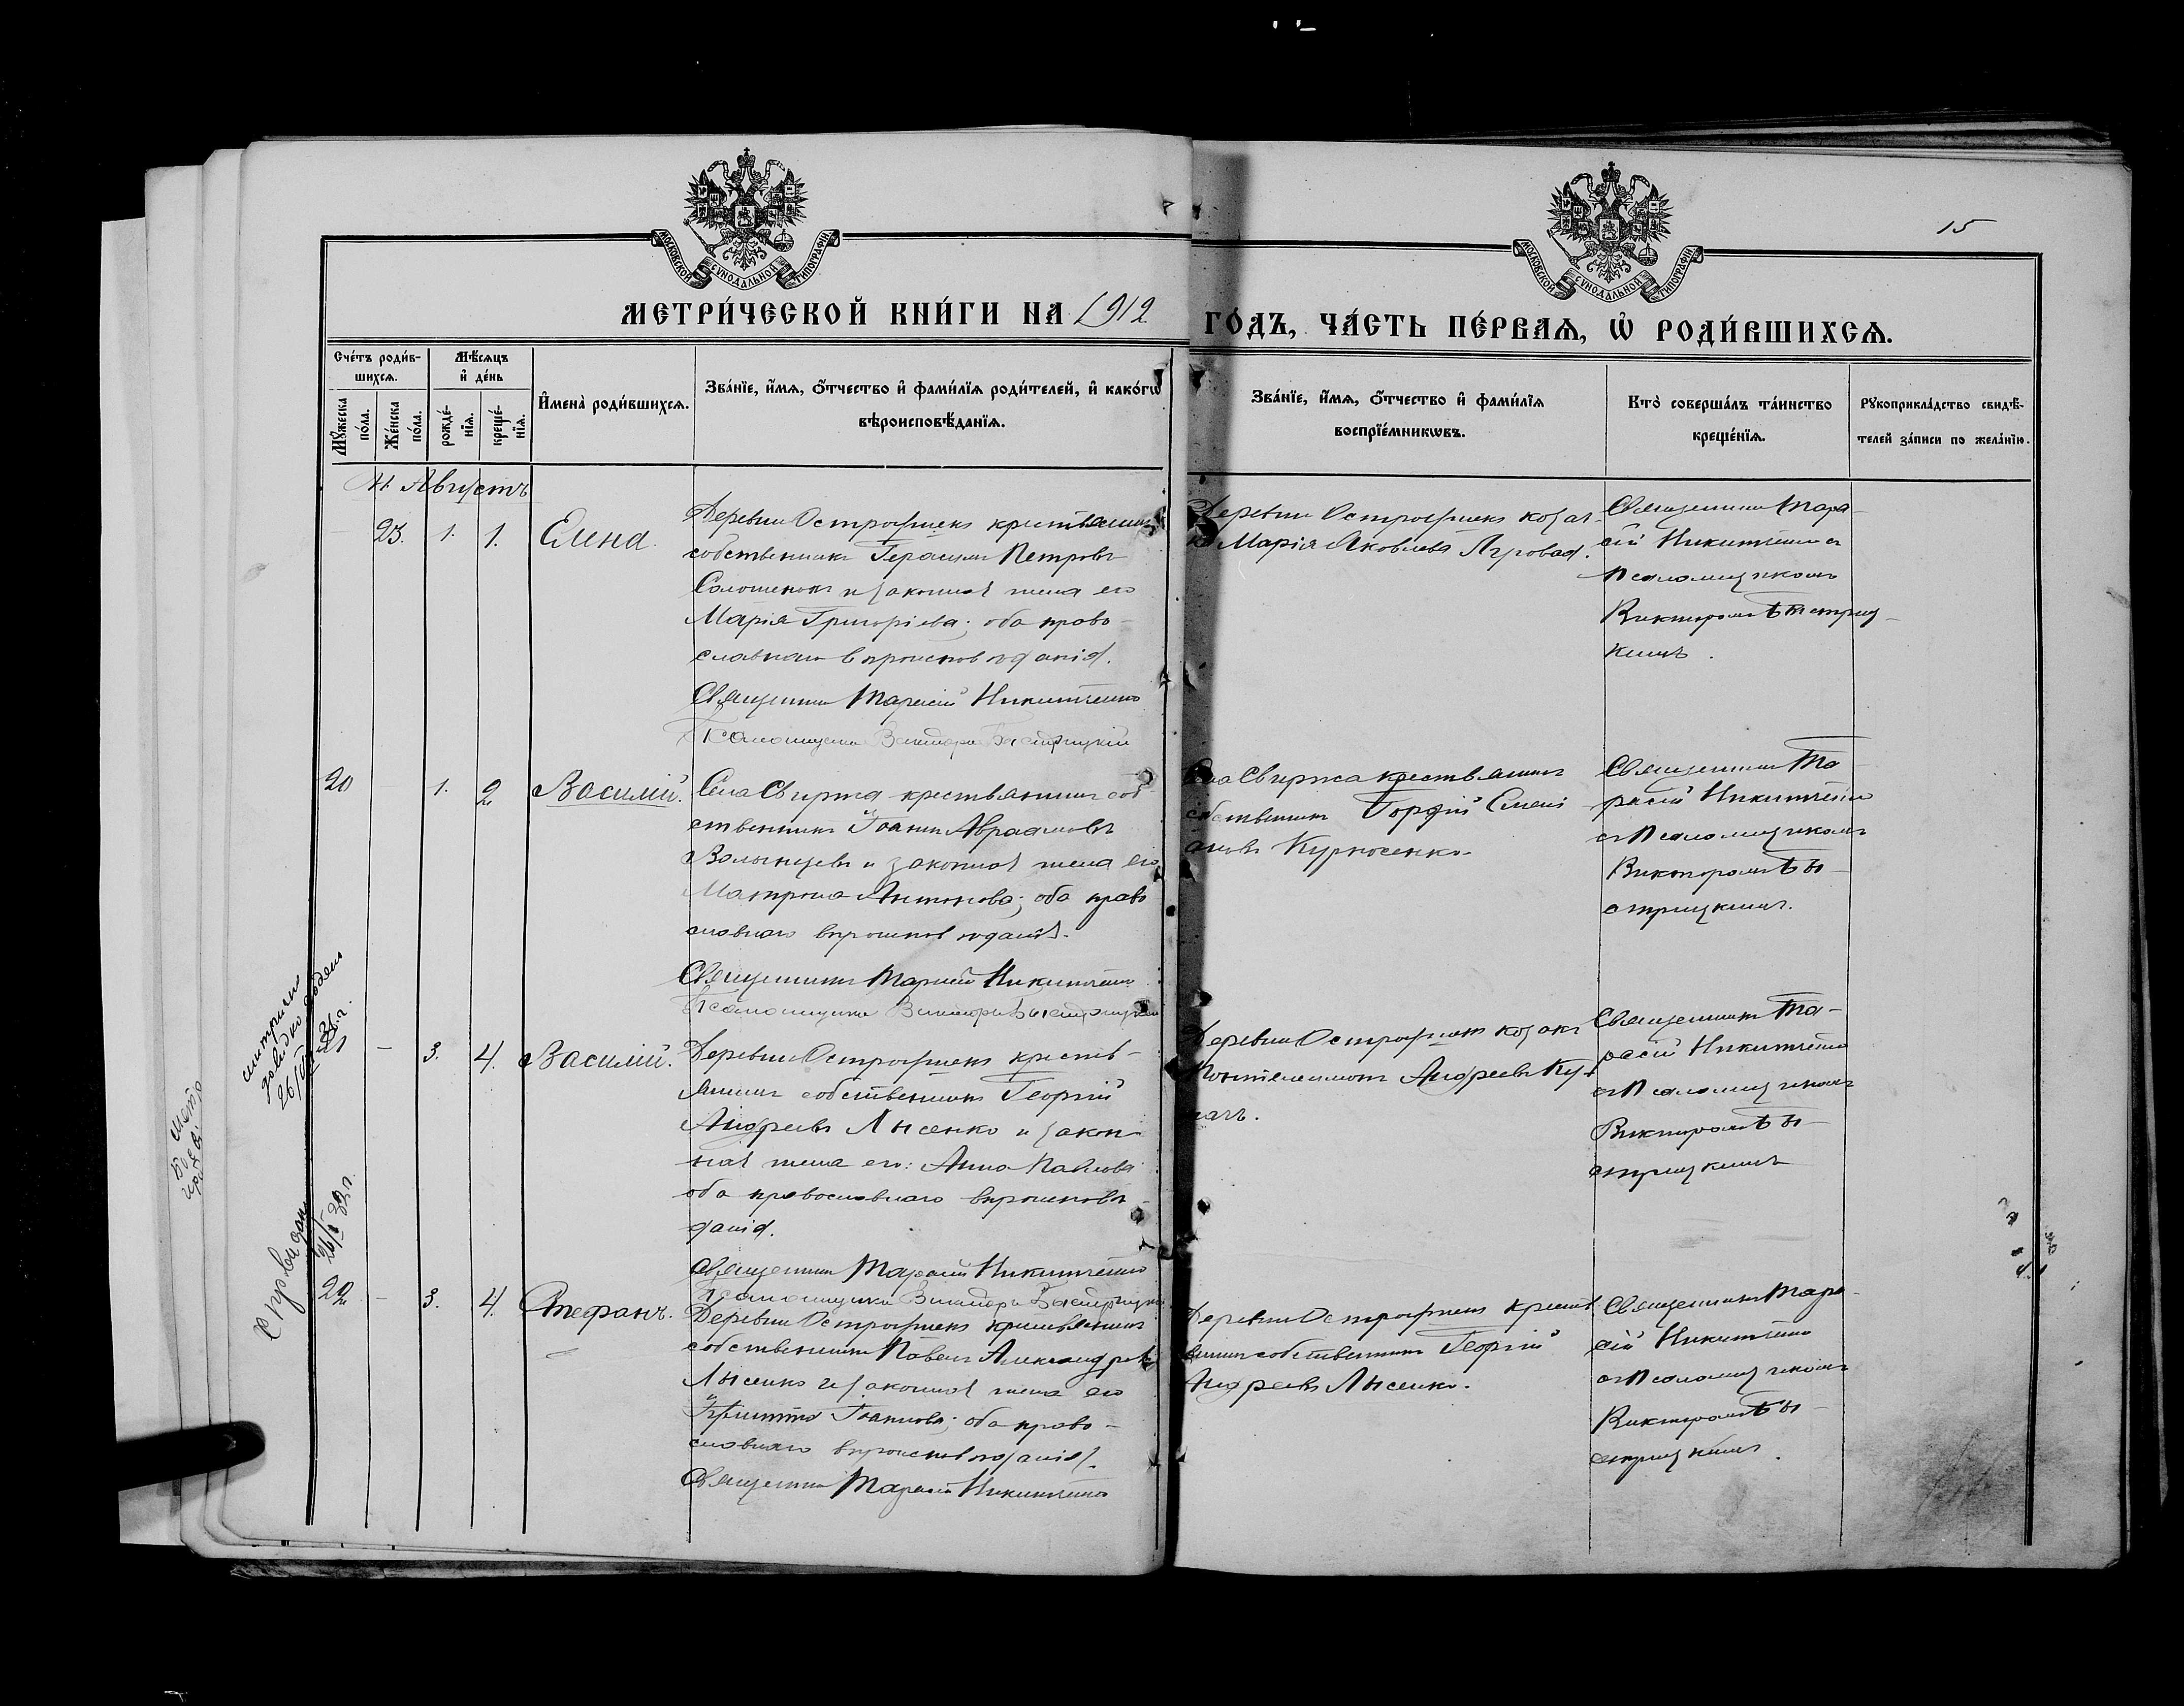 15
МОСКОВСКОЙ СУНОДАЛЬНОЙ ТИПОГРАФІИ
МОСКОВСКОЙ СУНОДАЛЬНОЙ ТИПОГРАФІИ
МЕТРИ́ЧЕСКОЙ КНИ́ГИ НА 1912
ГО́ДЪ, ЧА́СТЬ ПЕ́РВАѦ, Ѡ҆ РОДИ́ВШИХСѦ.
Сче́тъ роди́в-
шихсѧ.
Мꙋ́жеска по́ла.
Же́нска по́ла.
Мѣ́сѧцъ
и҆ де́нь
рожде́-
нїѧ.
креще́-
нїѧ.
И҆мена̀ роди́вшихсѧ.
Зва́нїе, и҆́мѧ, ѻ҆́тчество и҆ фами́лїѧ роди́телей, и҆ како́гѡ
вѣроисповѣ́данїѧ.
Зва́нїе, и҆́мѧ, ѻ҆́тчество и҆ фами́лїѧ
воспрїе́мникѡвъ.
Кто̀ соверша́лъ та́инство
креще́нїѧ.
Рꙋкоприкла́дство свидѣ́-
телей за́писи по жела́нїю.
М. Августъ
23. 1. 1. Елена.
крестьянинъ
собственникъ Герасимъ Петровъ
и законная жена его
Марія Григоріева; оба право-
славнаго вѣроисповѣданія.
Священникъ Тарасій Никитченко
Псаломщикъ Викторъ Быстрицкій
Деревни козач-
ка Марія Яковлева
Священникъ Тара-
сій Никитченко съ
псаломщикомъ
Викторомъ Быстриц-
кимъ.
20 - 1. 2 Василій.
Села Свиржа крестьянинъ соб-
ственникъ Іоаннъ Авраамовъ
Волынцевъ и законная жена его
Матрона Антонова; оба право
славнаго вѣроисповѣданія.
Священникъ Тарасій Никитченко
Псаломщикъ Викторъ Быстрицкій
Села Свиржа крестьянинъ
собственникъ Гордій Симе
оновъ
Священникъ Та-
расій Никитченко
съ псаломщикомъ
Викторомъ Бы-
стрицкимъ.
21 - 3. 4. Василій.
Деревни крестъ-
янинъ собственникъ Георгій
Андреевъ Лысенко и закон-
ная жена его: Анна Павлова
оба православнаго вѣроисповѣ-
данія.
Священникъ Тарасій Никитченко
Псаломщикъ Викторъ Быстрицкій
Деревни козакъ
Пантелеимонъ Андреевъ
Священникъ Та-
расій Никитченко
съ псаломщикомъ
Викторомъ Бы-
стрицкимъ
22 - 3. 4. Стефанъ.
Деревни крестьянинъ
собственникъ Павелъ Александровъ
Лысенко и законная жена его
Іоаннова; оба право-
славнаго вѣроисповѣданія.
Священникъ Тарасій Никитченко
Деревни крестъ
янинъ собственникъ Георгій
Андреевъ Лысенко.
Священникъ Тара-
сій Никитченко
съ псаломщикомъ
Викторомъ Бы-
стрицкимъ.